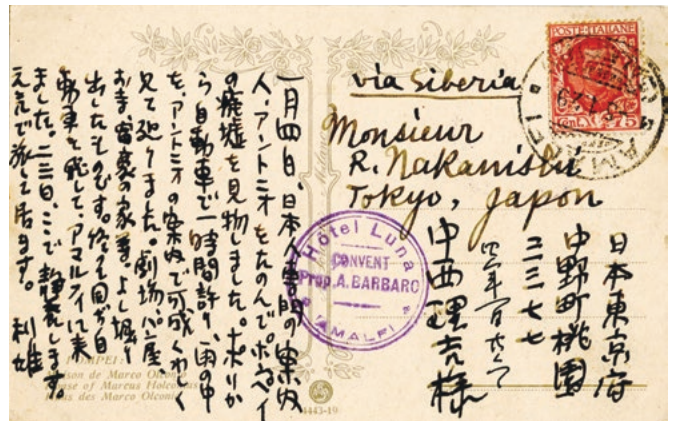 POSTE ITALIANE
CENT. 75
AMALFI
via Siberia
Monsieur
R. Nakanishi
Tokyo, Japon
日本東京府
中野町桃園
二三七七
中西理吉様
Hôtel Luna
CONVENT
Prop. A. BARBARO
AMALFI
一月四日、日本人専門の案内
人、アントニオをたのんで。ポンペイ
の廃墟を見物しました。ナポリか
ら自動車で一時間許り、雨の中
を、アントニオの案内で可成くわしく
見て廻りました。劇場、パン屋
お寺、富豪の家等、よし堀り
出したものです。
動車を飛して、アマルフィに来
ました。二三日、ここで静養します。
で旅して居ます。 利雄
POMPEI:
Maison de Marco Olconio
House of Marcus Holconius
Haus des Marco Olconio
4443-19